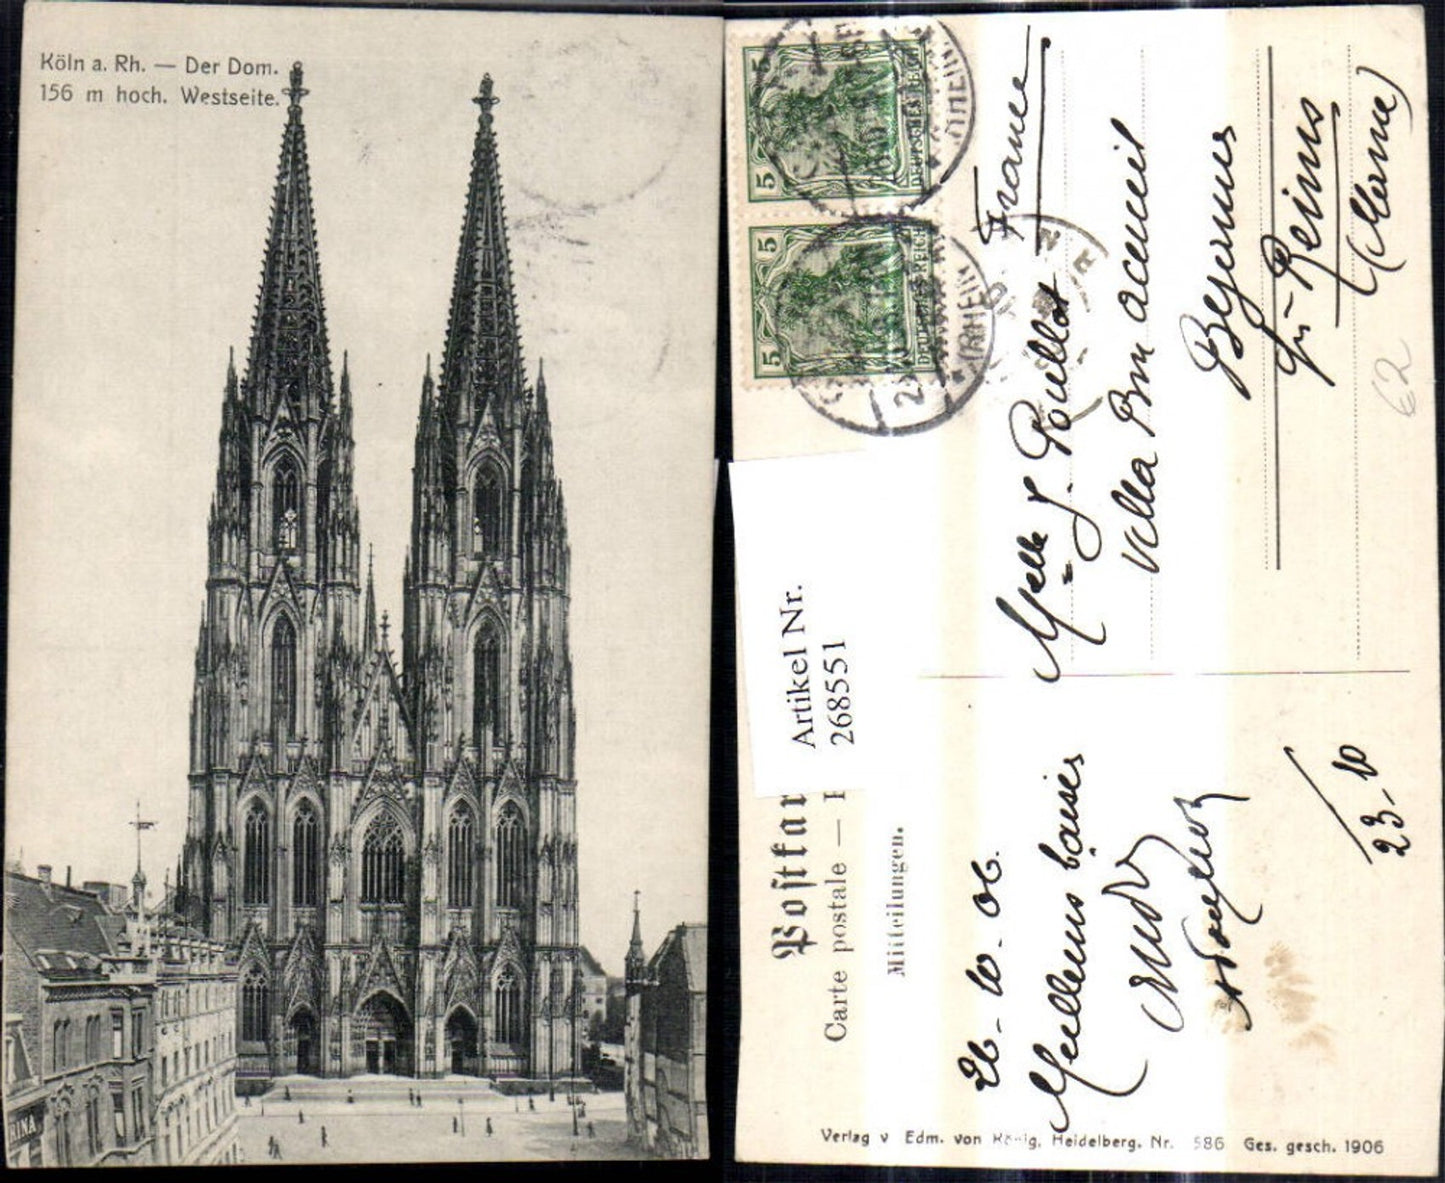 Köln a. Rh. — Der Dom.
156 m hoch. Westseite.
RINA
5
5
DEUTSCHES REICH
5
5
DEUTSCHES REICH
(RHEIN)
(RHEIN)
France
Melle J. Pouillot
Villa Bon acceuil
Bezannes
Reims
(Marne)
62
Artikel Nr.
268551
Postkar
Carte postale —
Mitteilungen.
26-10-06.
Meilleurs baisers
23-10
Verlag v Edm. von König, Heidelberg. Nr. 586 Ges. gesch. 1906